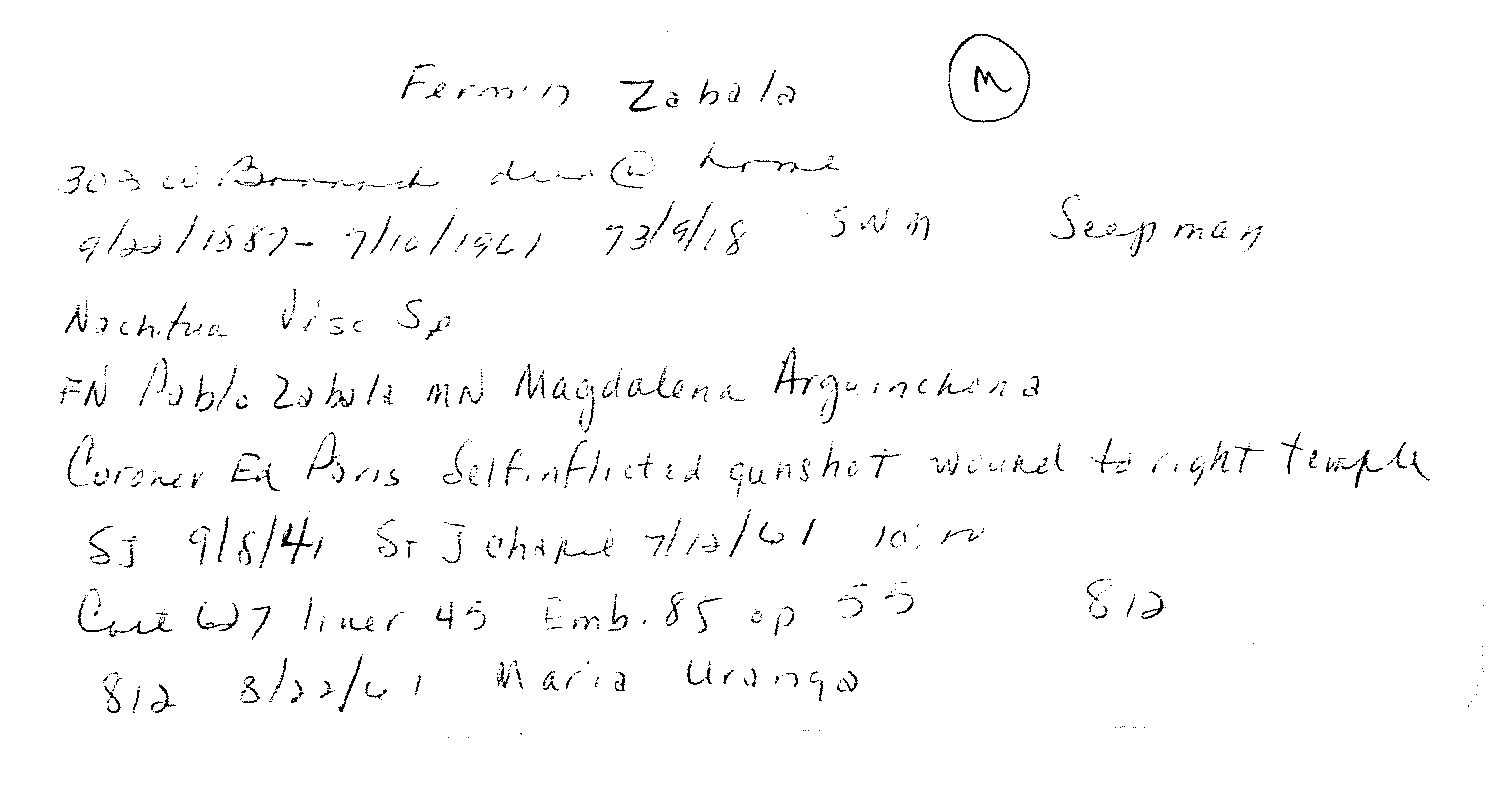 Fermin Zabala M
303 W Bannock dec @ home
9/22/1887- 7/10/1961 73/9/18 SWM Seepman
Nachitua Visc Sp
FN Pablo Zabala MN Magdalena Arguinchona
Coroner Ed Paris Selfinflicted gunshot wound to right temple
SJ 9/8/41 St J Chapel 7/12/61 10:00
Cost 627 liner 45 Emb. 85 op 55 812
812 8/22/61 Maria Uranga